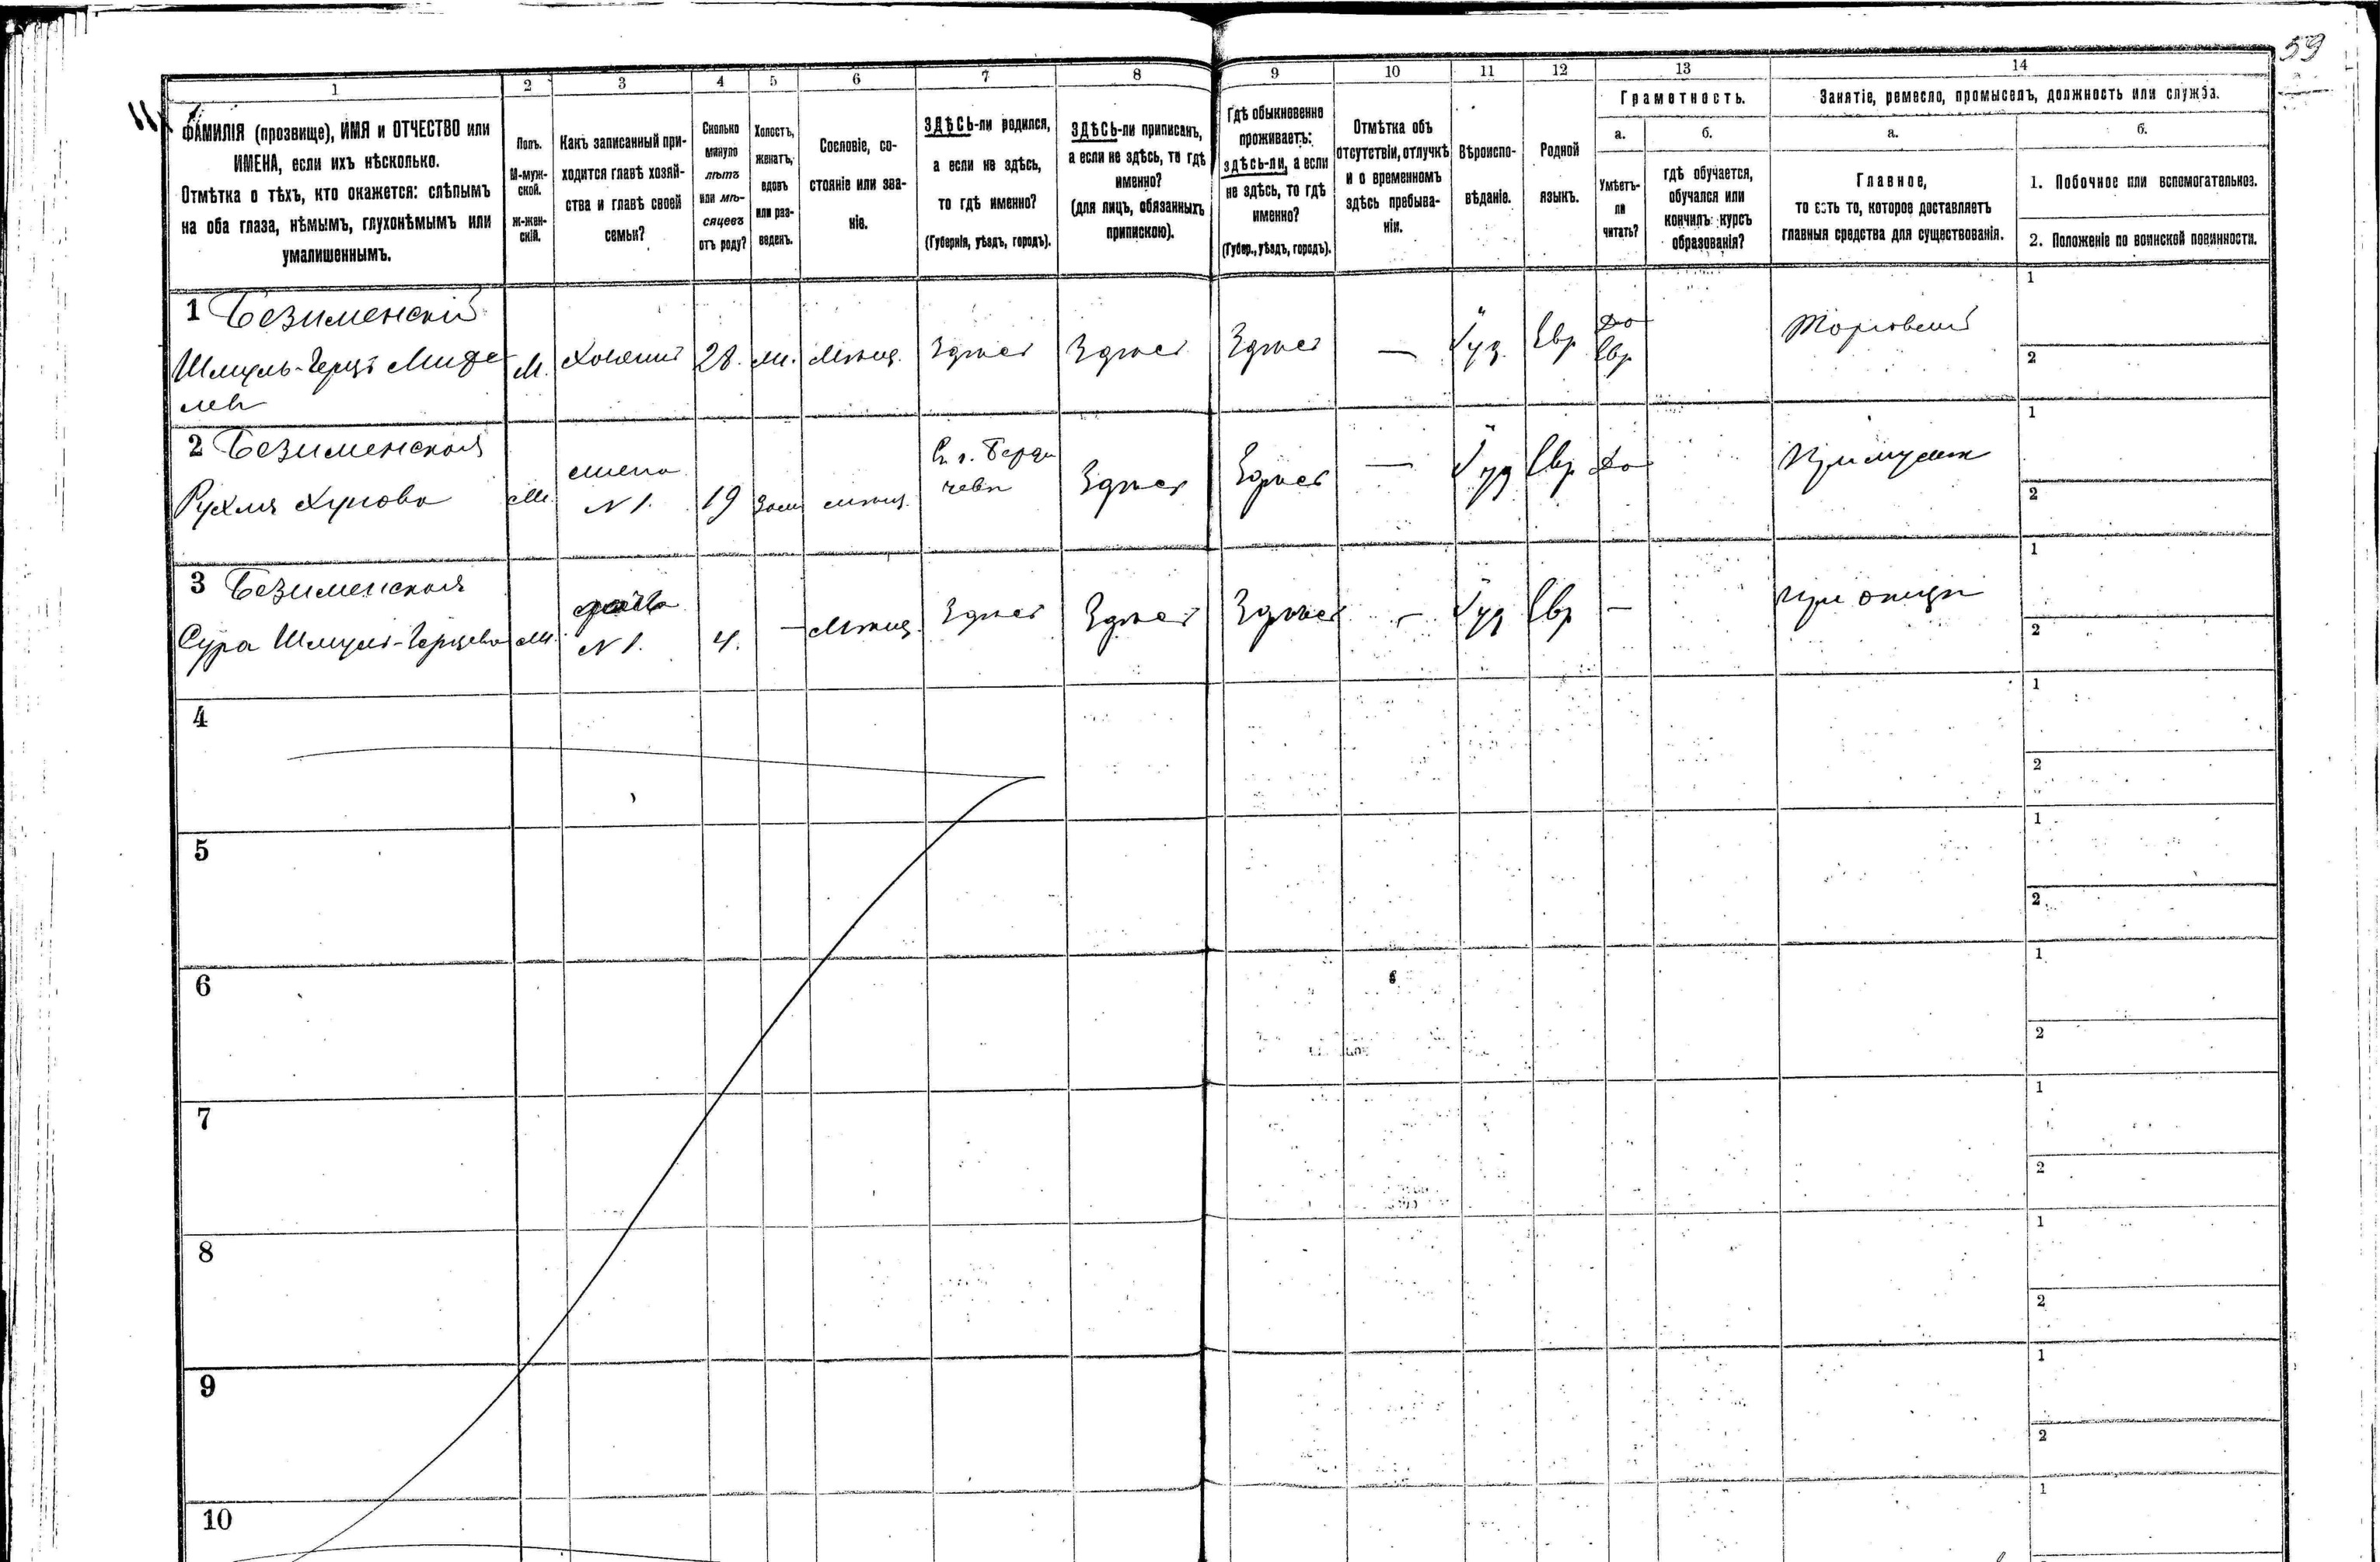 59
1 2 3 4 5 6 7 8 9 10 11 12 13 14
ФАМИЛІЯ (прозвище), ИМЯ и ОТЧЕСТВО или
ИМЕНА, если ихъ нѣсколько.
Отмѣтка о тѣхъ, кто окажется: слѣпымъ
на оба глаза, нѣмымъ, глухонѣмымъ или
умалишеннымъ.
Полъ.
М-муж-
ской.
Ж-жен-
скій.
Какъ записанный при-
ходится главѣ хозяй-
ства и главѣ своей
семьи?
Сколько
минуло
лѣтъ
или мѣ-
сяцевъ
отъ роду?
Холостъ,
женатъ,
вдовъ
или раз-
веденъ.
Сословіе, со-
стояніе или зва-
ніе.
ЗДѢСЬ-ли родился,
а если не здѣсь,
то гдѣ именно?
(Губернія, уѣздъ, городъ).
ЗДѢСЬ-ли приписанъ,
а если не здѣсь, то гдѣ
именно?
(для лицъ, обязанныхъ
припискою).
Гдѣ обыкновенно
проживаетъ:
здѣсь-ли, а если
не здѣсь, то гдѣ
именно?
(Губер., уѣздъ, городъ).
Отмѣтка объ
отсутствіи, отлучкѣ
и о временномъ
здѣсь пребыва-
ніи.
Вѣроиспо-
вѣданіе.
Родной
языкъ.
Грамотность.
а.
Умѣетъ-
ли
читать?
б.
гдѣ обучается,
обучался или
кончилъ курсъ
образованія?
Занятіе, ремесло, промыселъ, должность или служба.
а.
Главное,
то есть то, которое доставляетъ
главныя средства для существованія.
б.
1. Побочное или вспомогательное.
2. Положеніе по воинской повинности.
1 Безименскій
Шмуль-Герцъ
М. Хозяинъ 28. мѣщ. Здѣсь Здѣсь Здѣсь — Іуд. Евр Да
Евр
Торговецъ
1
2
2 Безименская
Рухля
N 1. 19 Зам мѣщ.
Въ г. Берди
чевѣ
Здѣсь Здѣсь — Іуд Евр Да
При мужѣ
1
2
3 Безименская
Сура Шмуль-Герцева
N 1. 4. — Мѣщ. Здѣсь Здѣсь Здѣсь — Іуд Евр —
При отцѣ
1
2
4
1
2
5
1
2
6
1
2
7
1
2
8
1
2
9
1
2
10
1